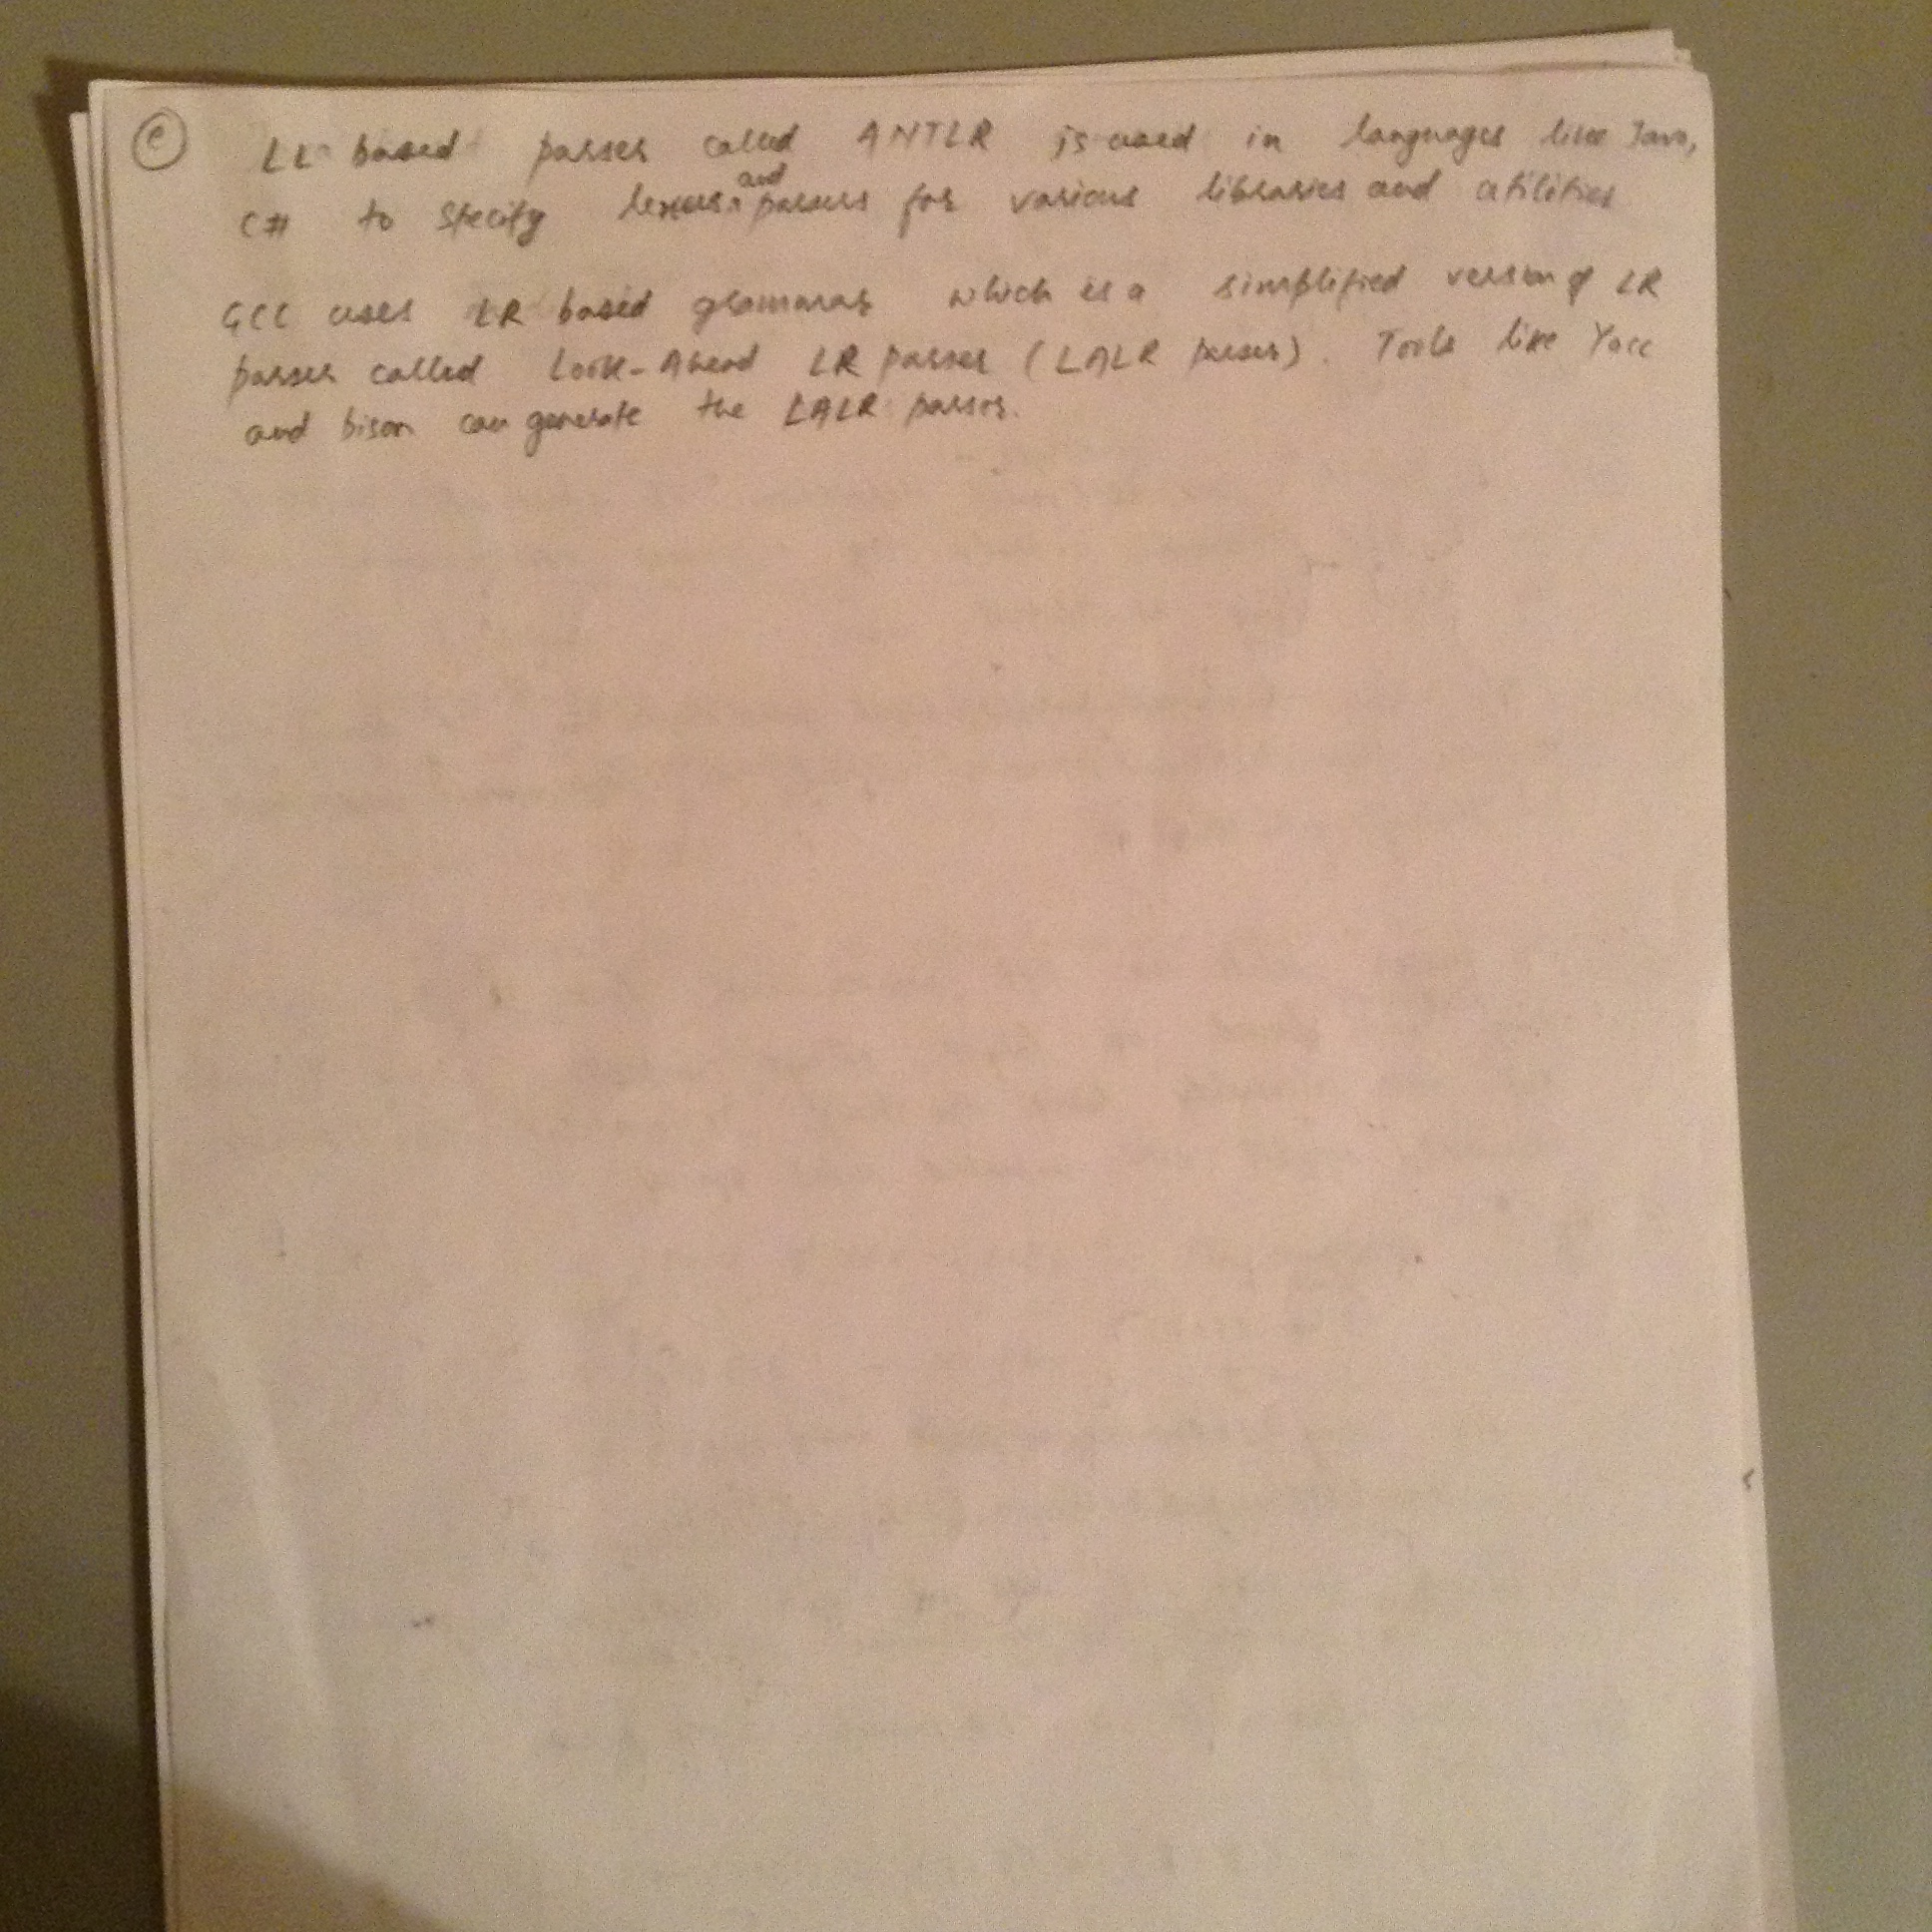 (c) LL based parser called ANTLR is used in languages like Java,
C# to specify lexers and parsers for various libraries and utilities
GCC uses LR based grammar which is a simplified version of LR
parser called Look-Ahead LR parser (LALR parser). Tools like Yacc
and bison can generate the LALR parser.